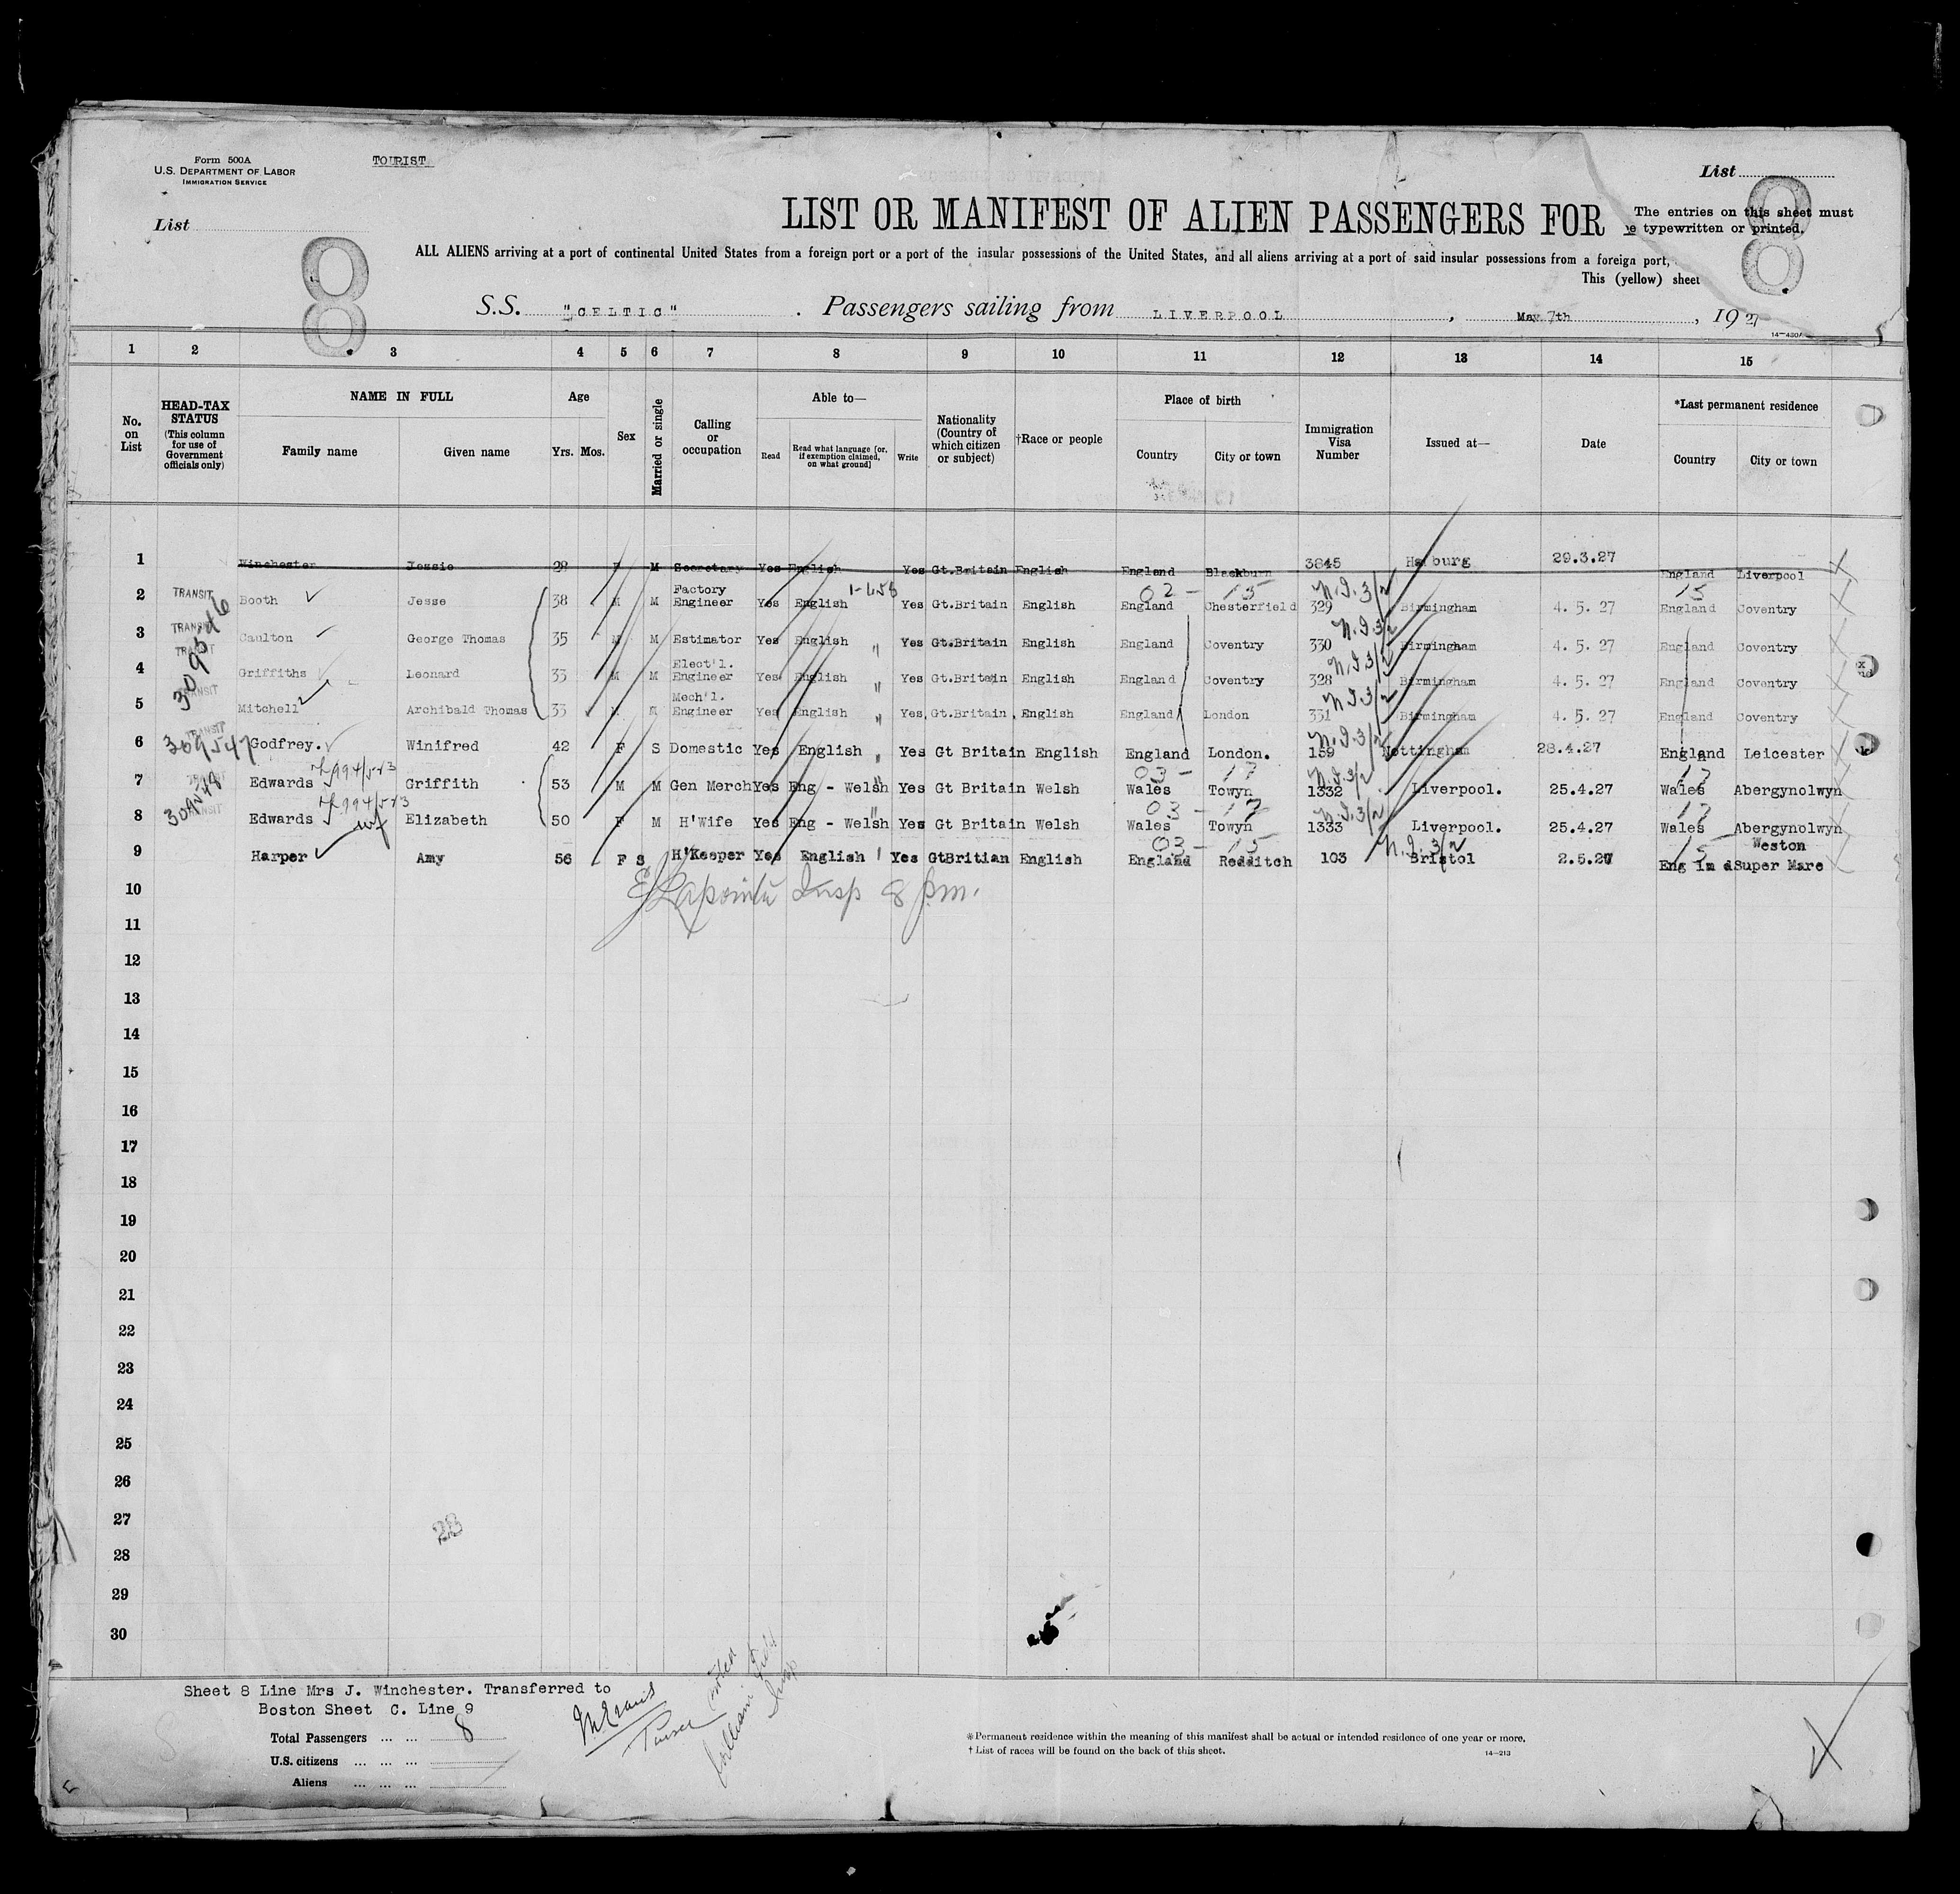 Form 500A
U.S. DEPARTMENT OF LABOR
IMMIGRATION SERVICE
TOURIST
List
8
List
8
LIST OR MANIFEST OF ALIEN PASSENGERS FOR
The entries on this sheet must
e typewritten or printed.
ALL ALIENS arriving at a port of continental United States from a foreign port or a port of the insular possessions of the United States, and all aliens arriving at a port of said insular possessions from a foreign port,
This (yellow) sheet
S.S. "CELTIC" . Passengers sailing from LIVERPOOL , May 7th , 1927
14-430A
1 2 3 4 5 6 7 8 9 10 11 12 13 14 15
No. on List
HEAD-TAX STATUS (This column for use of Government officials only)
NAME IN FULL
Family name Given name
Age
Yrs. Mos.
Sex
Married or single
Calling or occupation
Able to—
Read
Read what language [or, if exemption claimed, on what ground]
Write
Nationality (Country of which citizen or subject)
†Race or people
Place of birth
Country City or town
Immigration Visa Number
Issued at—
Date
*Last permanent residence
Country City or town
1 Winchester Jessie 28 F M Secretary Yes English Yes Gt.Britain English England Blackburn 3845 29.3.27 England Liverpool
2 TRANSIT Booth Jesse 38 M M Factory Engineer Yes English Yes Gt.Britain English England Chesterfield 329 N.I.3/2 Birmingham 4. 5. 27 England Coventry
02 - 15 15
3 TRANSIT Caulton George Thomas 35 M M Estimator Yes English " Yes Gt.Britain English England Coventry 330 N.I.3/2 Birmingham 4. 5. 27 England Coventry
309546
4 TRANSIT Griffiths Leonard 33 M M Elect'l. Engineer Yes English " Yes Gt.Britain English England Coventry 328 N.I.3/2 Birmingham 4. 5. 27 England Coventry
5 TRANSIT Mitchell Archibald Thomas 33 M M Mech'l. Engineer Yes English " Yes Gt.Britain English England London 331 N.I.3/2 Birmingham 4. 5. 27 England Coventry
6 TRANSIT 309547 Godfrey. Winifred 42 F S Domestic Yes English " Yes Gt Britain English England London. 159 N.I.3/2 Nottingham 28.4.27 England Leicester
7 TRANSIT Edwards Griffith 53 M M Gen Merch Yes Eng - Welsh " Yes Gt Britain Welsh Wales Towyn 1332 N.I.3/2 Liverpool. 25.4.27 Wales Abergynolwyn
03 - 17 17
309548
8 TRANSIT Edwards wf Elizabeth 50 F M H'Wife Yes Eng - Welsh " Yes Gt Britain Welsh Wales Towyn 1333 N.I.3/2 Liverpool. 25.4.27 Wales Abergynolwyn
03 - 17 17
9 Harper Amy 56 F S H'Keeper Yes English Yes GtBritian English England Redditch 103 N.I.3/2 Bristol 2.5.27 Eng ln d Weston Super Mare
03 - 15 15
10
Insp 8 p.m.
11
12
13
14
15
16
17
18
19
20
21
22
23
24
25
26
27
28
28
29
30
Sheet 8 Line Mrs J. Winchester. Transferred to
Boston Sheet C. Line 9
Total Passengers ... ... 8
U.S. citizens ... ... ...
Aliens ... ... ...
Purser
William
Insp
*Permanent residence within the meaning of this manifest shall be actual or intended residence of one year or more.
† List of races will be found on the back of this sheet.
14-213